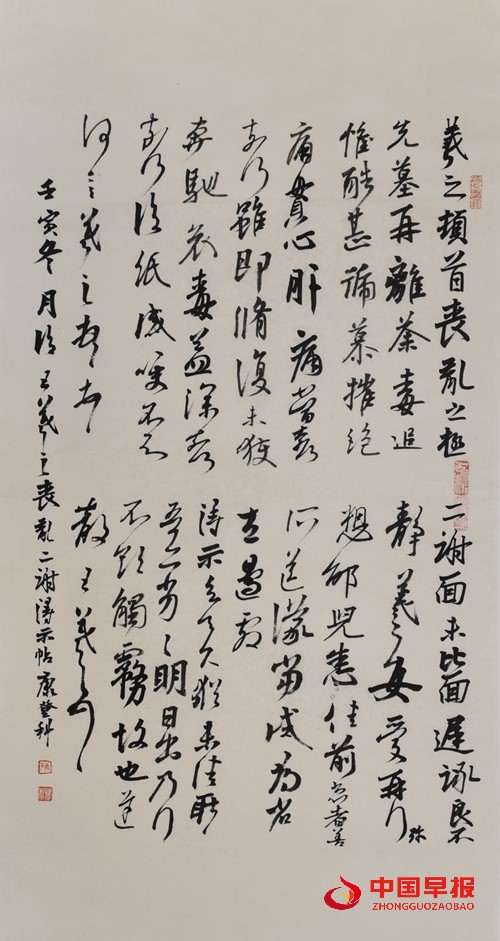 羲之頓首喪亂之極
先墓再離荼毒追
惟酷甚號慕摧絕
痛貫心肝痛當奈
奈何雖即脩復未獲
奔馳哀毒益深奈
奈何臨紙感哽不知
何言羲之頓首
二謝面未比面遲詠良不
靜羲之女愛再行 殊
想邵兒悉佳前患者善
所送議當試尋省
左邊劇
得示知足下猶未佳耿
吾亦劣劣明日出乃行
不欲觸霧故也遲
散王羲之
壬寅冬月臨王羲之喪亂二謝得示帖康登科
中国早报
ZHONGGUOZAOBAO